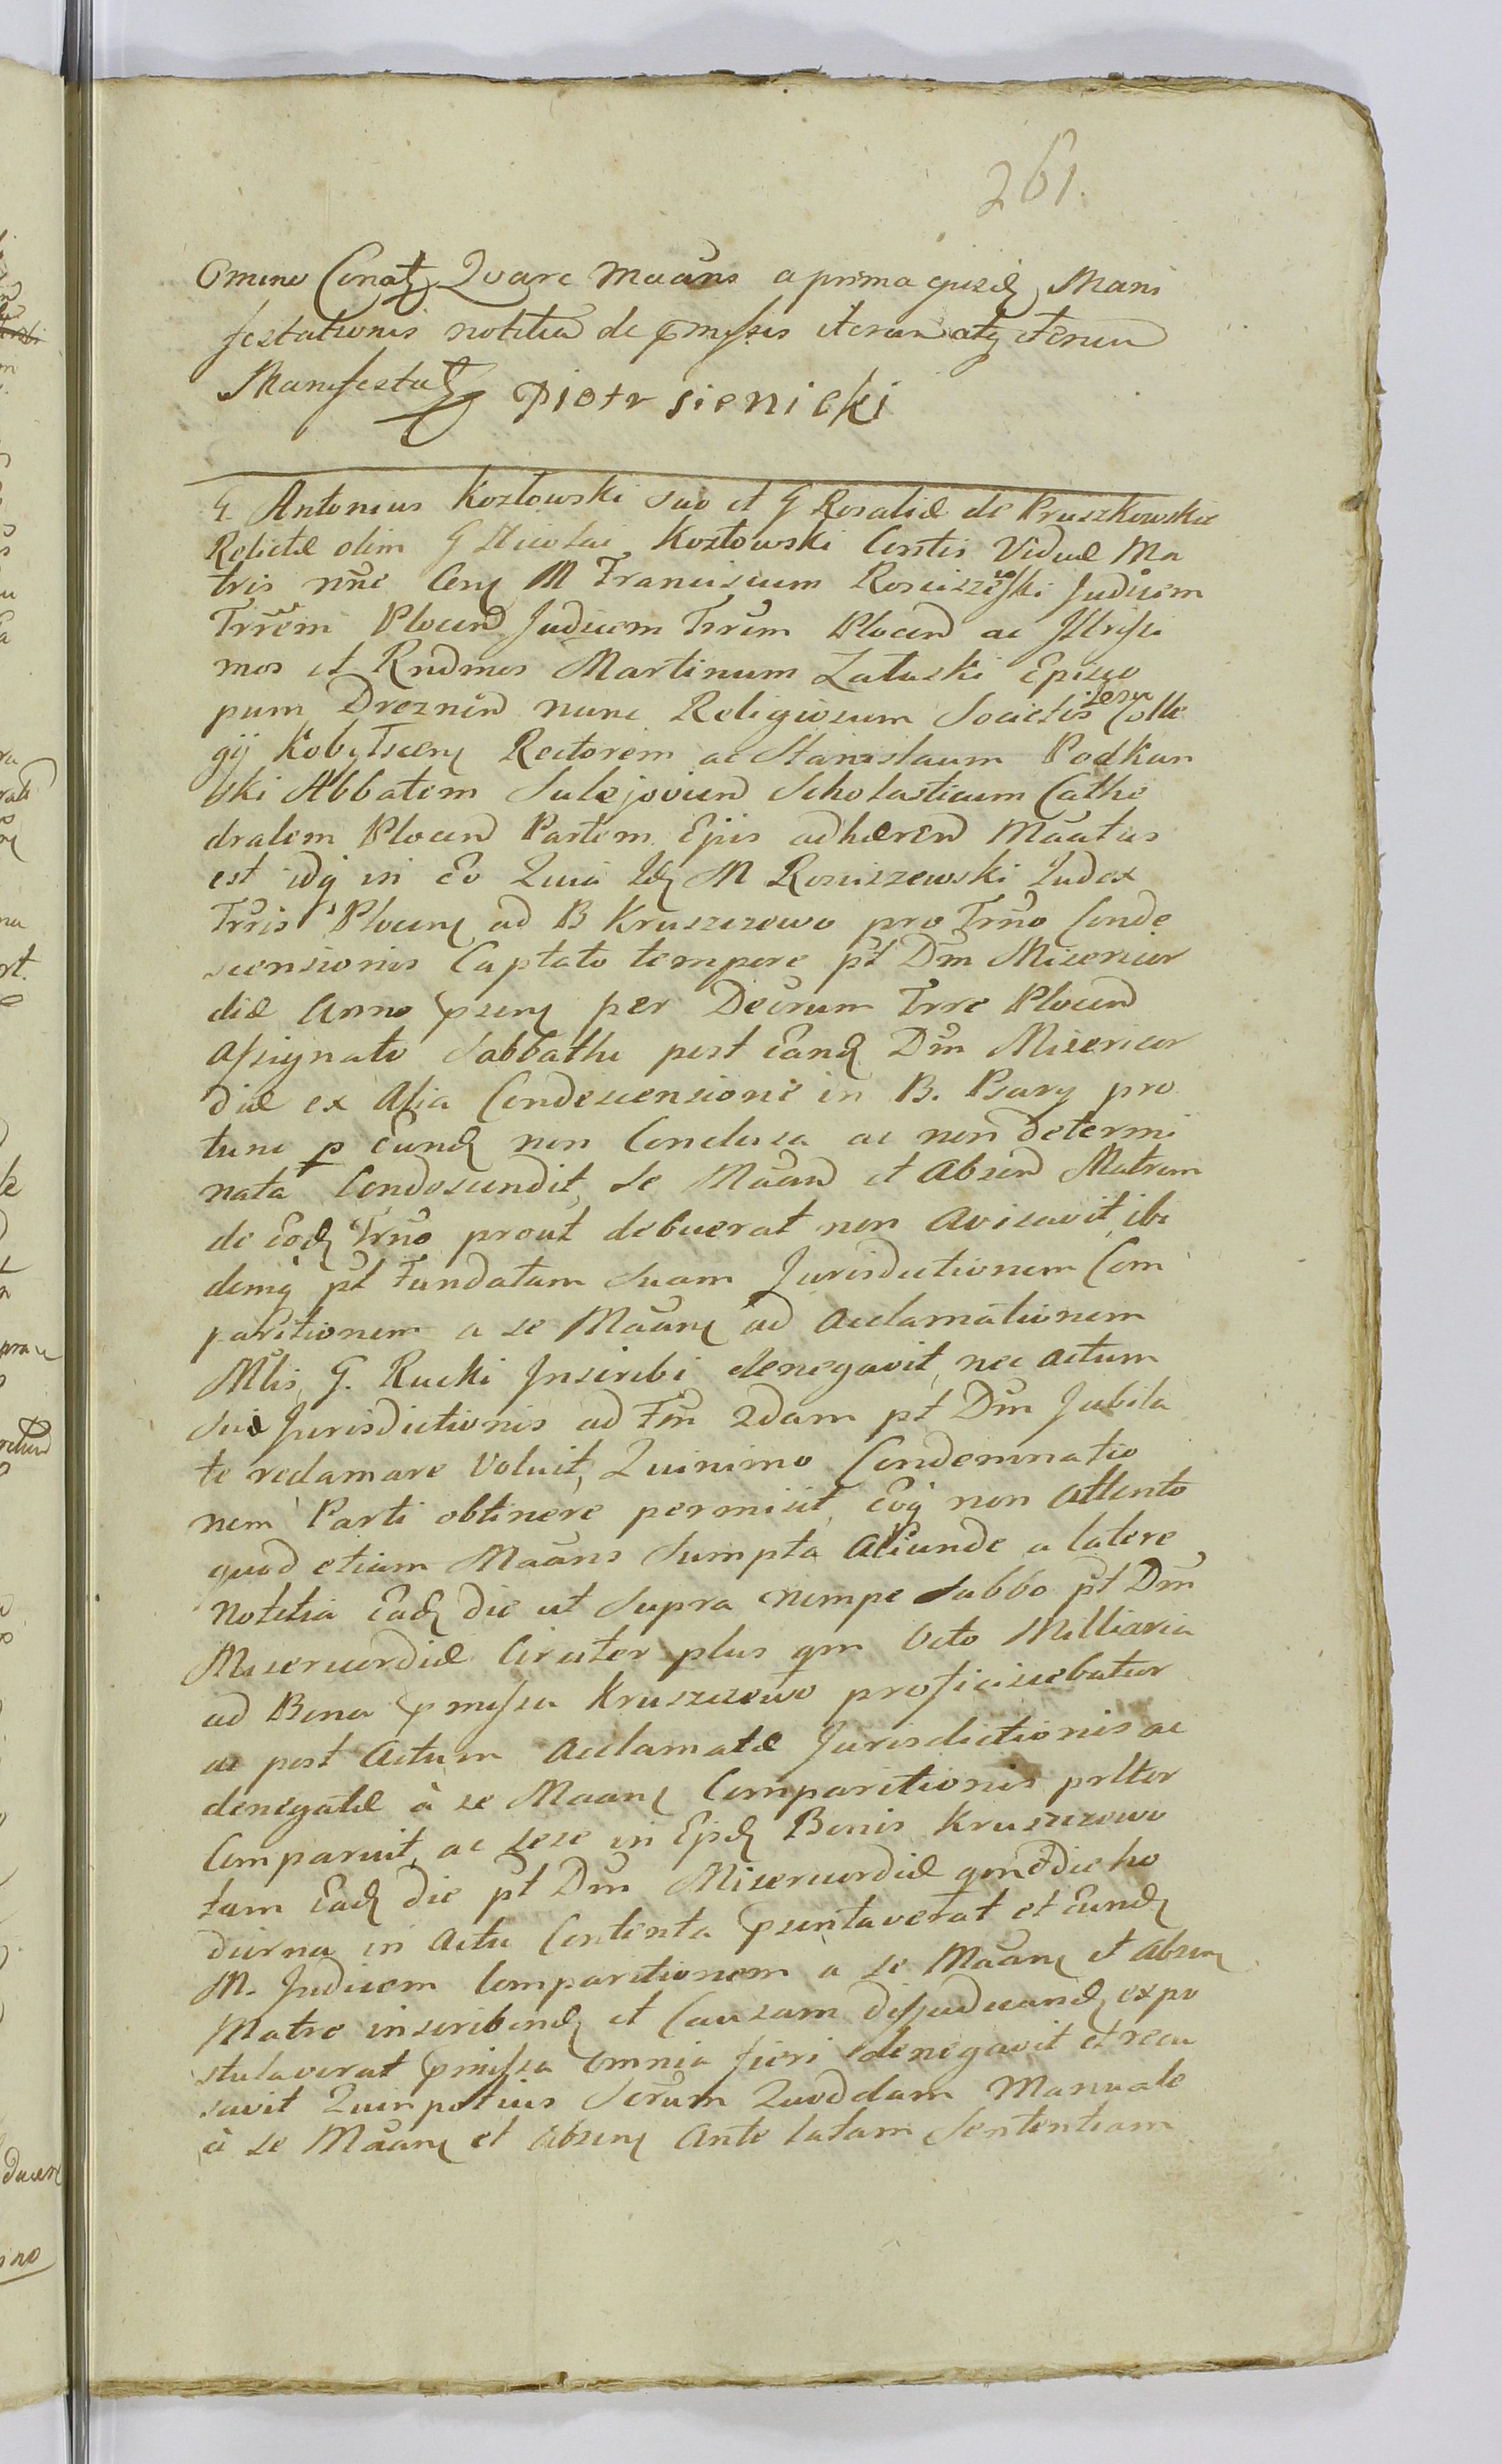 261.
Omino Conatʒ Qvare Maans a prima ejusdʒ Mani
festationis notitia de pmissis iterum atqʒ iterum
Manifestatʒ Piotr sienicki
G Antonius Kozłowski suo et G Rosaliæ de Pruszkowskie
Relictæ olim G Nicolai Kozłowski Contis Viduæ Ma
tris nñe Cenʒ M Franciscum Rosciszewski Judicem
Trrem Plocen Judicem Trrum Plocen ac Illrissi
mos et Rndmos Martinum Załuski Episco
pum Dreznen nunc Religiosum Societis Jesu Colle
gij Kobylscenʒ Rectorem ac Stanislaum Podkan
ski Abbatem Sulejovien Scholasticum Cathe
dralem Plocen Partem Ejus adhæren Maatus
est idqʒ in Eo Quia Idʒ M Rosciszewski Judex
Trris Plocenʒ ad B Kruszczewo pro Trño Conde
scensionis Captato tempore pt Dm Misericor
diæ Anno psenʒ per Decrum Trre Plocen
Assignato Sabbatho post Eandʒ Dm Misericor
diæ ex Alia Condescensione in B. Psary pro
tunc p Eundʒ non Conclusa ac non determi
nata Condescendit, se Maan et Absen Matrem
de Eodʒ Trño prout debuerat non Avisavit, ibi
demqʒ pt Fundatam Suam Jurisdictionem Com
paritionem a se Maanʒ ad Acclamationem
Mlis G. Rucki Inscribi denegavit, nec Actum
suæ Jurisdictionis ad Fm 2dam pt Dm Jubila
te reclamare Voluit, Quinimo Condemnatio
nem Parti obtinere permisit, Eoqʒ non attento
quod etiam Maans Sumpta Aliunde a latere
Notitia Eadʒ die ut Supra nempe Sabbo pt Dm
Misericordiæ Circiter plus qm Octo Milliaria
ad Bona pmissa Kruszczewo proficiscebatur
ac post Actum Acclamatæ Jurisdictionis ac
denegatæ à se Maanʒ Comparitionis prltor
Comparuit, ac sese in Ejsdʒ Bonis Kruszczewo
tam Eadʒ die pt Dm Misericordiæ qm die ho
dierna in Actu Contenta psentaverat et Eundʒ
M. Judicem Comparitionem a se Maanʒ et absenʒ
Matre inscribendʒ et Causam dijudicandʒ expo
stulaverat pmissa omnia fieri denegavit et recu
savit Quinpotius Scrum Quoddam Manuale
à se Maanʒ et absenʒ Ante latam Sententiam